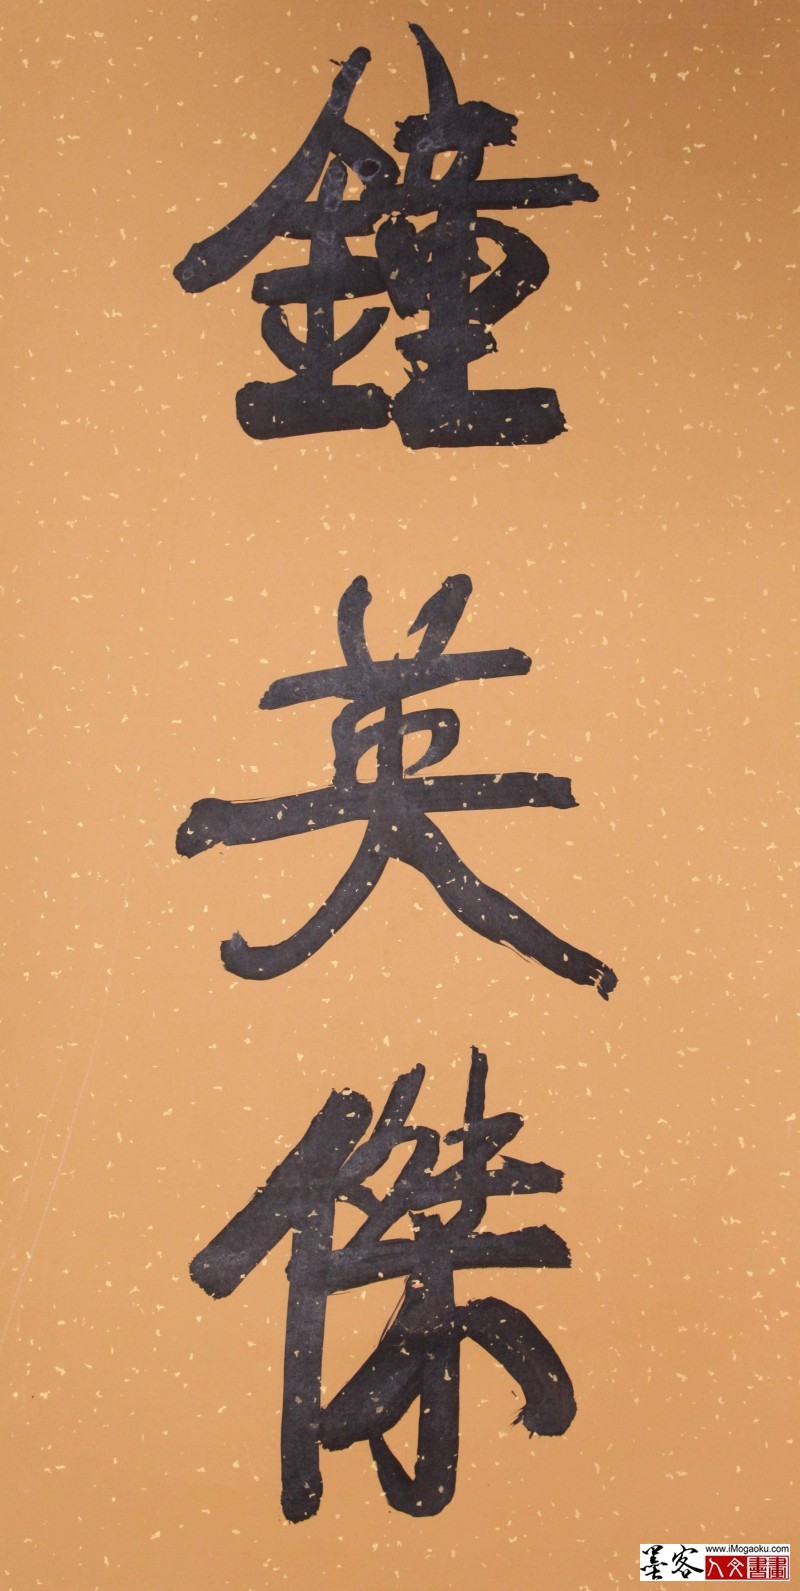 鐘英傑
墨客 www.iMogaoku.com
人文書畫